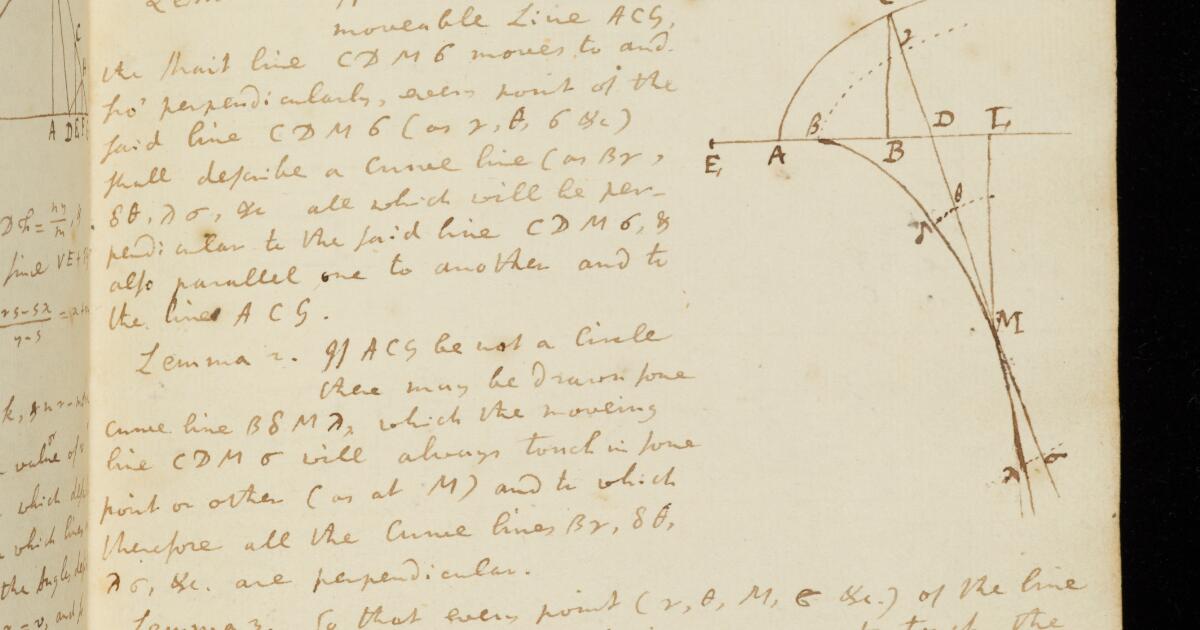 moveable Line ACG,
the strait line CDMσ moves to and
fro' perpendicularly, every point of the
said line CDMσ (as γ, θ, σ &c)
shall describe a curve line (as Bγ,
δθ, λσ, &c all which will be per-
pendicular to the said line CDMσ, &
also parallel one to another and to
the line ACG.
Lemma 2. If ACG be not a Circle
there may be drawn some
curve line BδMλ, which the moveing
line CDMσ will always touch in some
point or other (as at M) and to which
therefore all the curve lines Bγ, δθ,
λσ, &c. are perpendicular.
Lemma 3. So that every point (γ, θ, M, σ &c.) of the line
touch the
C
γ
E
A
B
B
D
L
θ
δ
M
λ
σ
A D E F
Dh = ny/m, &
since VE
k, &
value of
which
which lines
the Angles
= v, and